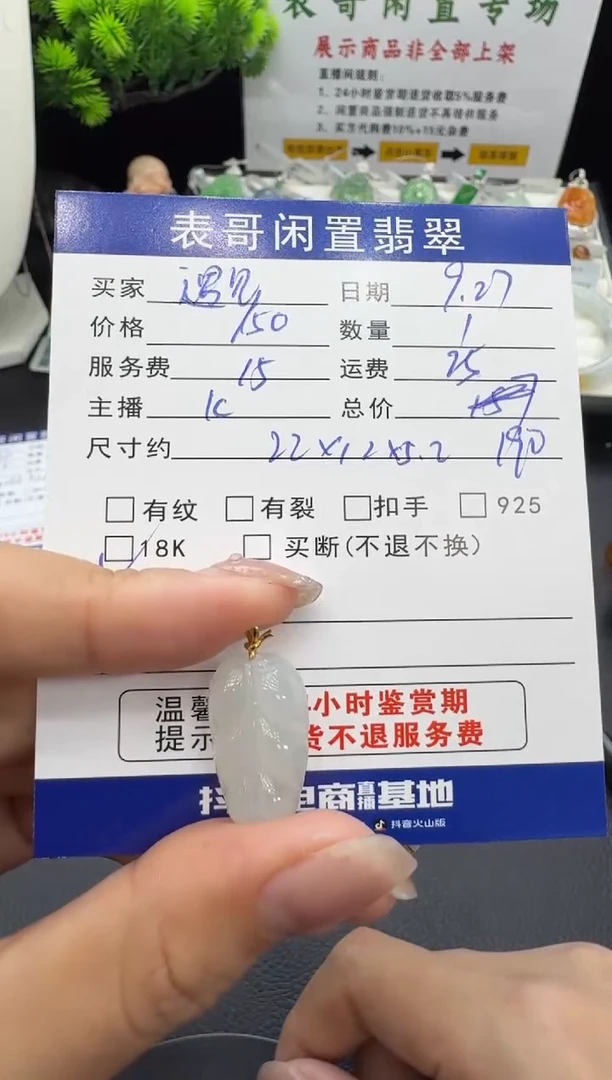 表哥闲置专场
展示商品非全部上架
直播间规则：
1、24小时鉴赏期退货收取5%服务费
2、闲置商品强制退货不再错样服务
3、买方代购费10%+15元杂费
表哥闲置翡翠
买家 遇见 日期 9.27
价格 150 数量 1
服务费 15 运费 25
主播 K 总价
尺寸约 22×12×5.2 190
□有纹 □有裂 □扣手 □925
□18K □买断(不退不换)
温馨 小时鉴赏期
提示 货不退服务费
抖 电商直播基地
抖音火山版